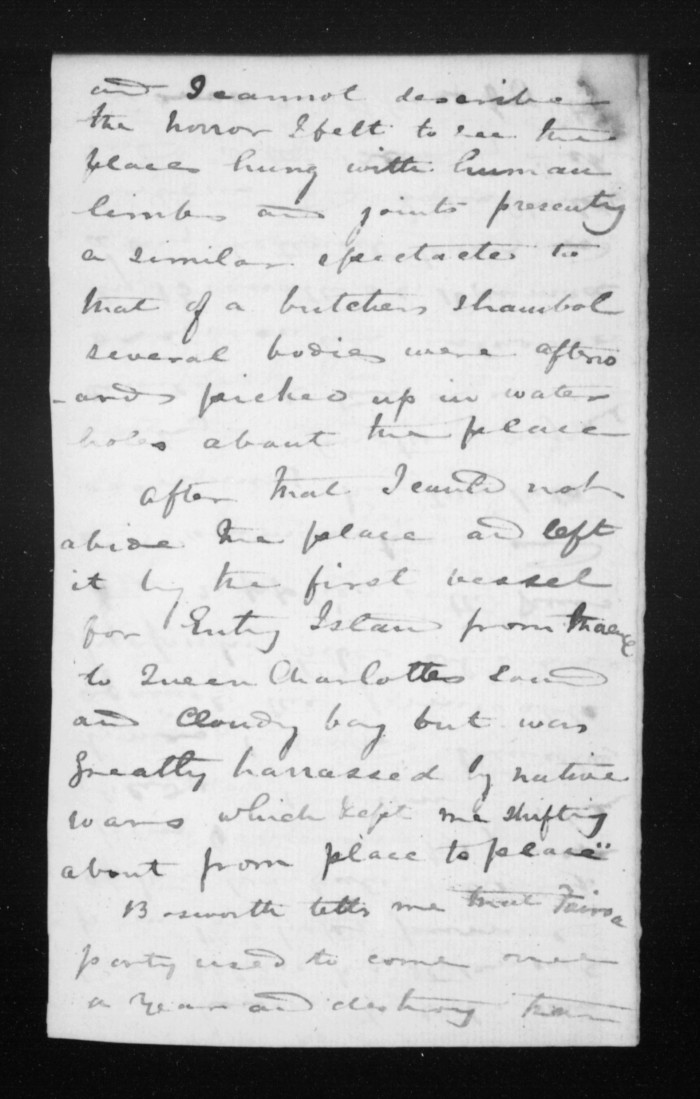 and I cannot describe
the horror I felt to see the
places hung with human
limbs and joints presenting
a similar spectacle to
that of a butchers shambol
several bodies were afterw
-ards picked up in water
holes about the place
After that I could not
abide the place and left
it by the first vessel
for Entry Island from thence
to Queen Charlottes Sound
and Cloudy bay but was
greatly harrassed by native
wars which kept me shifting
about from place to place"
B sworth tells me that
party used to come once
a year and destroy